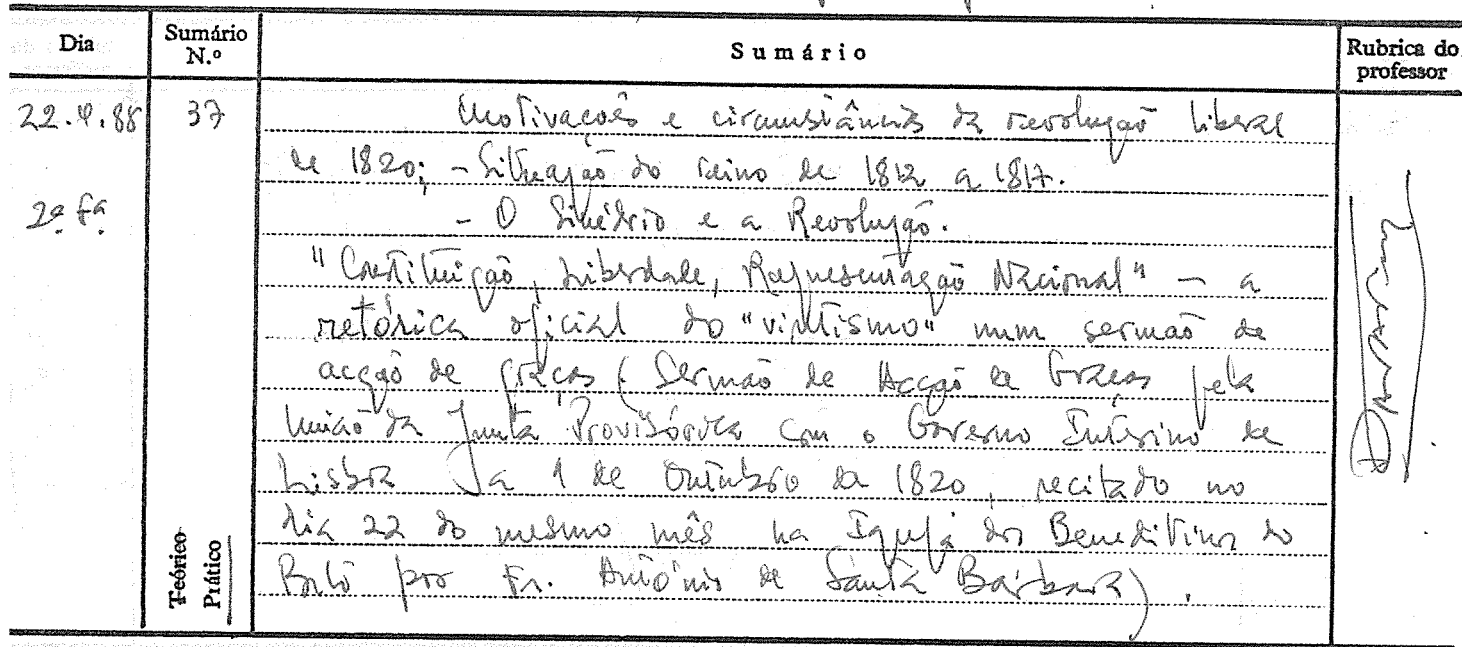 Dia Sumário N.º Sumário Rubrica do professor
22.4.88 37 Motivações e circunstâncias da revolução liberal
de 1820; - Situação do reino de 1812 a 1817.
2ª fª - O Sinédrio e a Revolução.
"Constituição, Liberdade, Representação Nacional" - a
retórica oficial do "vintismo" num sermão de
acção de graças (Sermão de Acção de Graças pela
União da Junta Provisória com o Governo Interino de
Lisboa a 1 de Outubro de 1820, recitado no
dia 22 do mesmo mês na Igreja dos Beneditinos do
Porto por Fr. António de Santa Bárbara).
Teórico
Prático